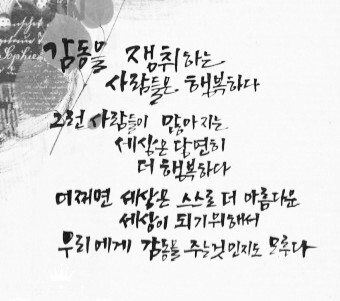 감동을 잼취하는
사람들은 행복하다
그런 사람들이 많아지는
세상은 당연히
더 행복하다
어쩌면 세상은 스스로 더 아름다운
세상이 되기위해서
우리에게 감동을 주는것인지도 모른다